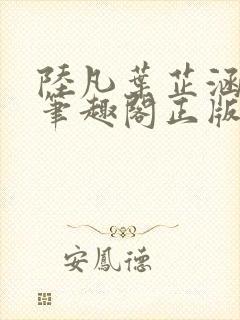 陸凡葉芷涵
筆趣閣正版
安鳳德